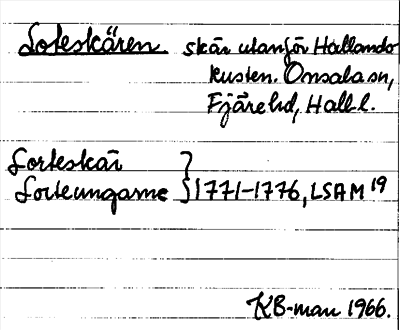 Loteskären skär utanför Hallands
kusten. Onsala sn,
Fjäre hd, Hall. l.
Lorteskär
Lorteungarne } 1771-1776, LSAM 19
KB-man 1966.